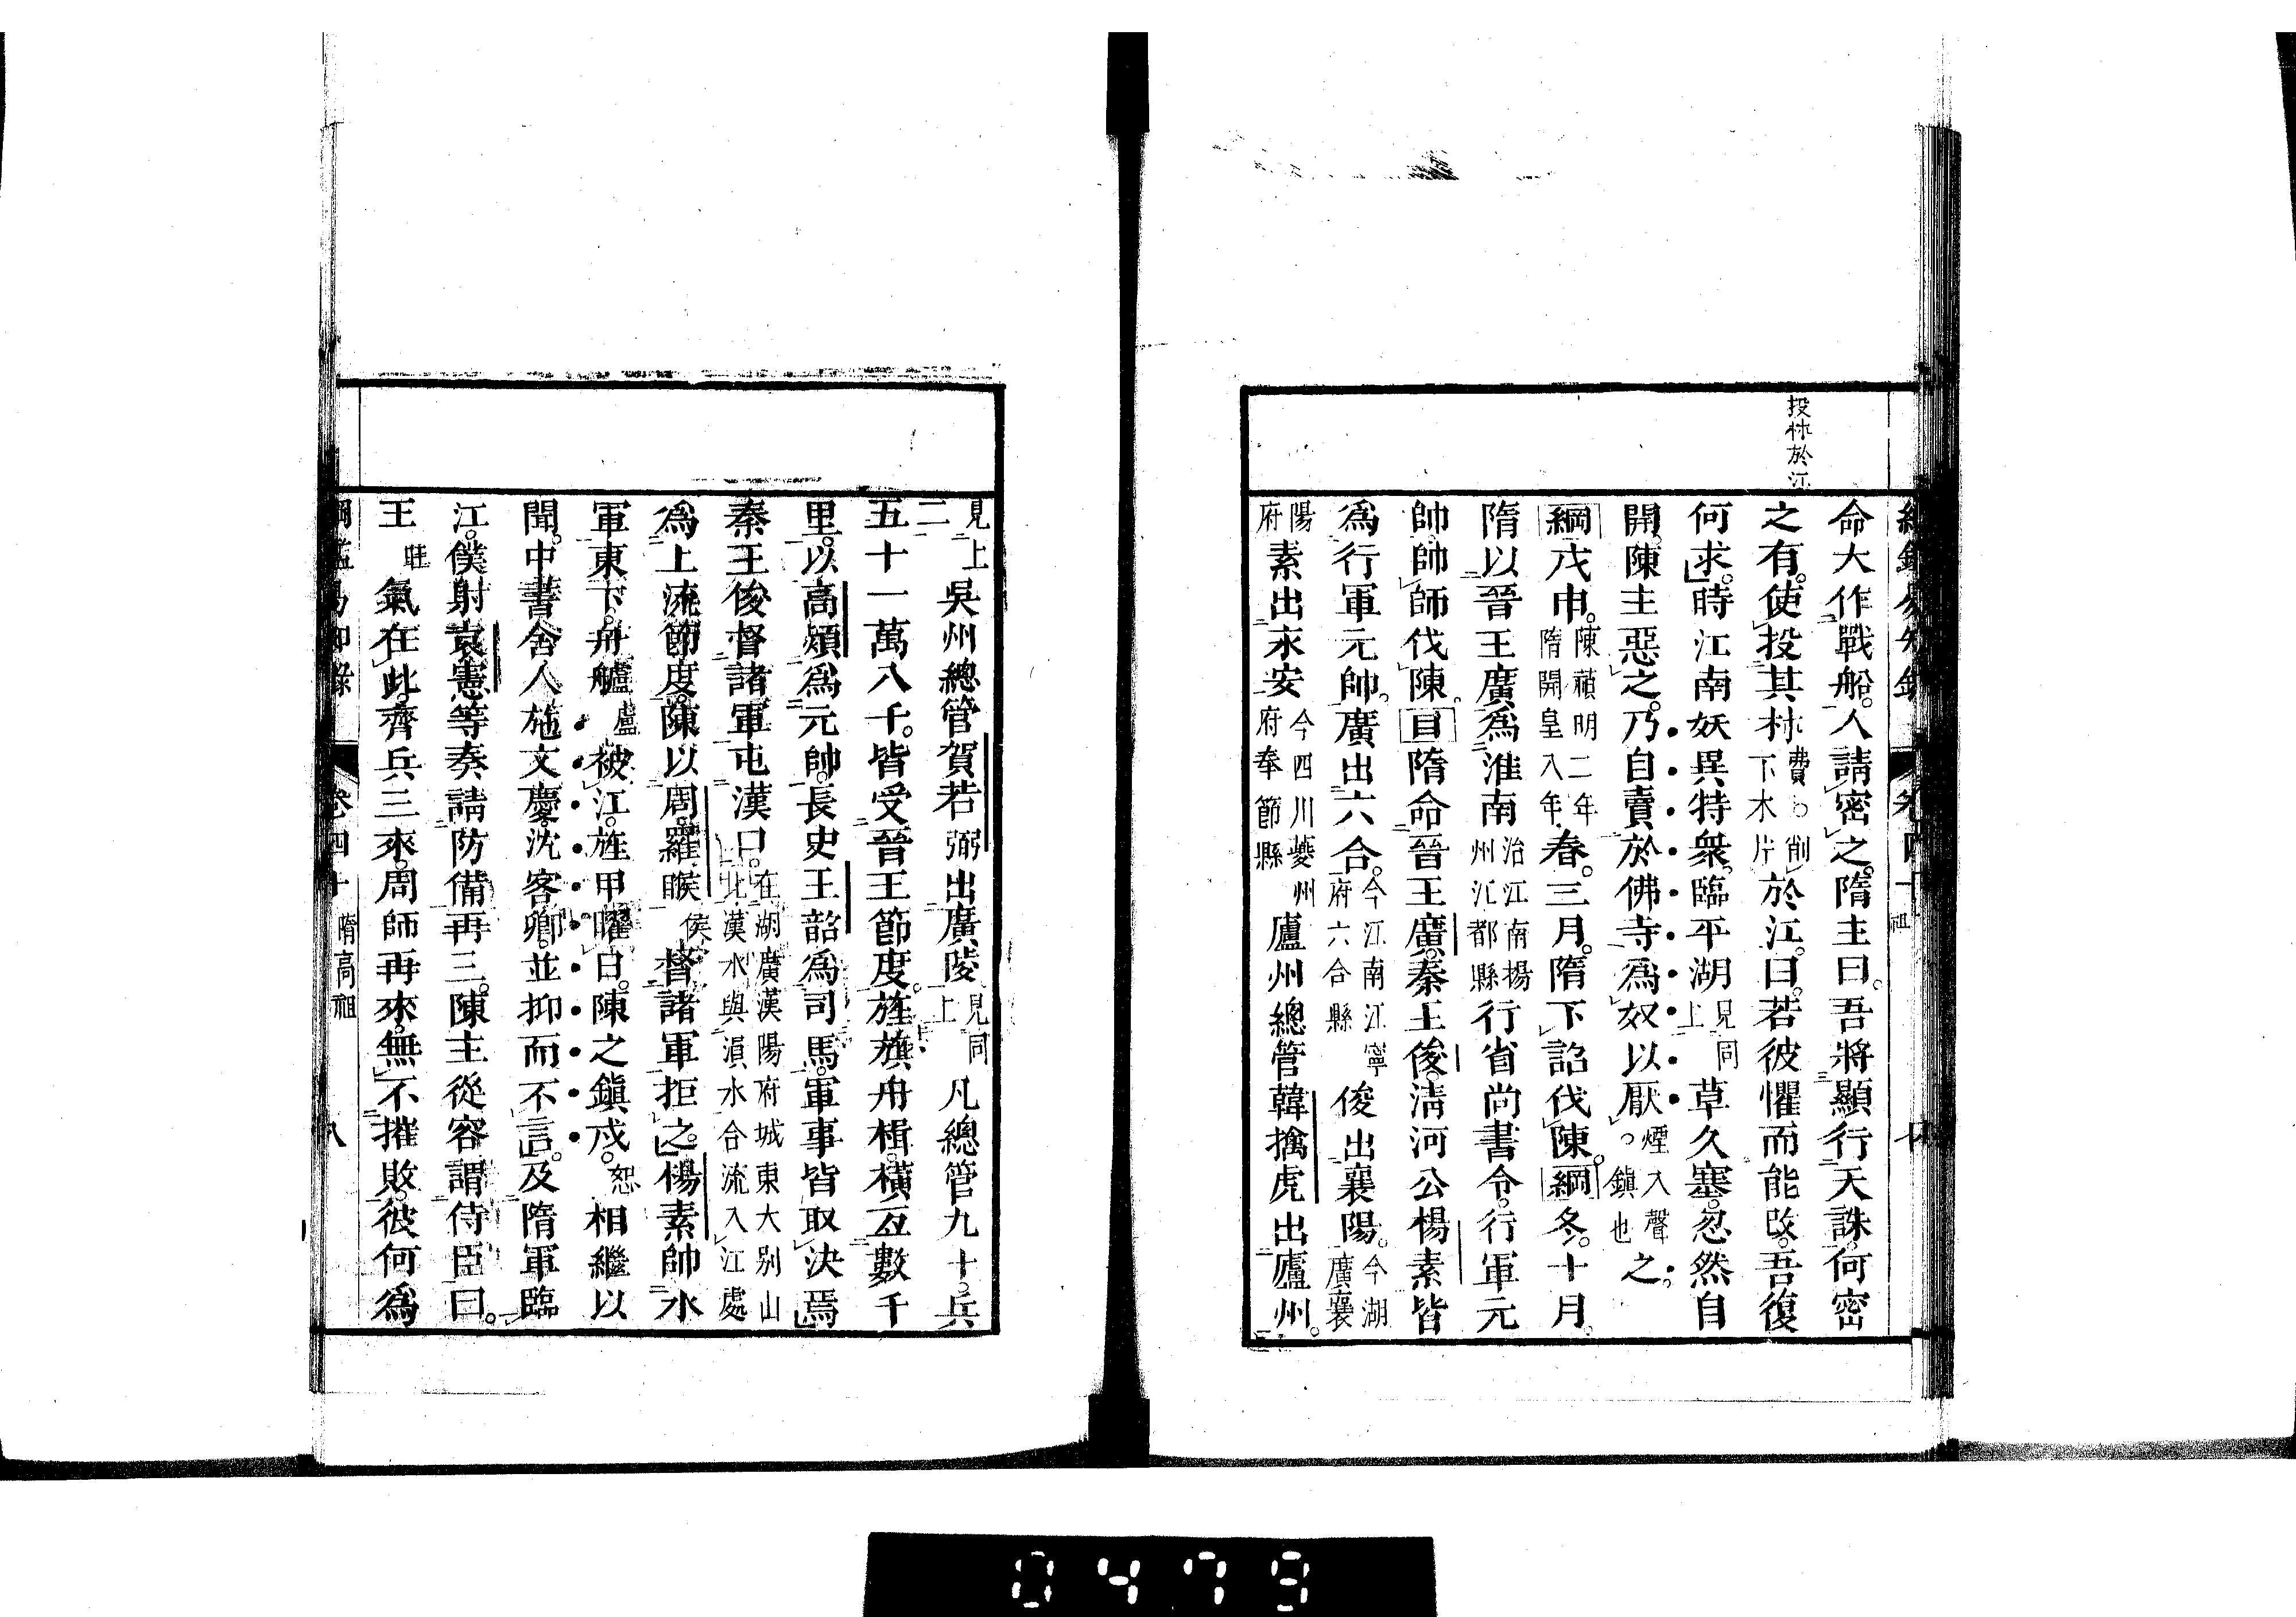 投杮於江
命大作戰船。人請密之。隋主曰。吾將顯行天誅。何密
之有。使投其杮費。削下木片於江。曰。若彼懼而能改。吾復
何求。時江南妖異特衆。臨平湖見同上草久塞。忽然自
開。陳主惡之。乃自賣於佛寺爲奴以厭煙入聲。鎭也之。
綱戊申。陳禎明二年隋開皇八年春。三月。隋下詔伐陳。綱冬。十月。
隋以晉王廣爲淮南治江南揚州江都縣行省尚書令。行軍元
帥。帥師伐陳。目隋命晉王廣。秦王俊。淸河公楊素皆
爲行軍元帥。廣出六合。今江南江寧府六合縣俊出襄陽。今湖廣襄
陽府素出永安今四川夔州府奉節縣廬州總管韓擒虎出廬州。
卷四十
見上二吳州總管賀若弼出廣陵見同上凡總管九十。兵
五十一萬八千。皆受晉王節度。旌旗舟楫。橫亙數千
里。以高熲爲元帥長史。王韶爲司馬。軍事皆取決焉。
秦王俊督諸軍屯漢口。在湖廣漢陽府城東大別山北漢水與溳水合流入江處
爲上流節度。陳以周羅㬋侯督諸軍拒之。楊素帥水
軍東下。舟艫盧被江。旌甲曜日。陳之鎭戍。恕相繼以
聞。中書舍人施文慶。沈客卿。並抑而不言。及隋軍臨
江。僕射袁憲等奏請防備再三。陳主從容謂侍臣曰。
王旺氣在此。齊兵三來。周師再來。無不摧敗。彼何爲
綱鑑易知錄 卷四十 隋高祖 八
0479